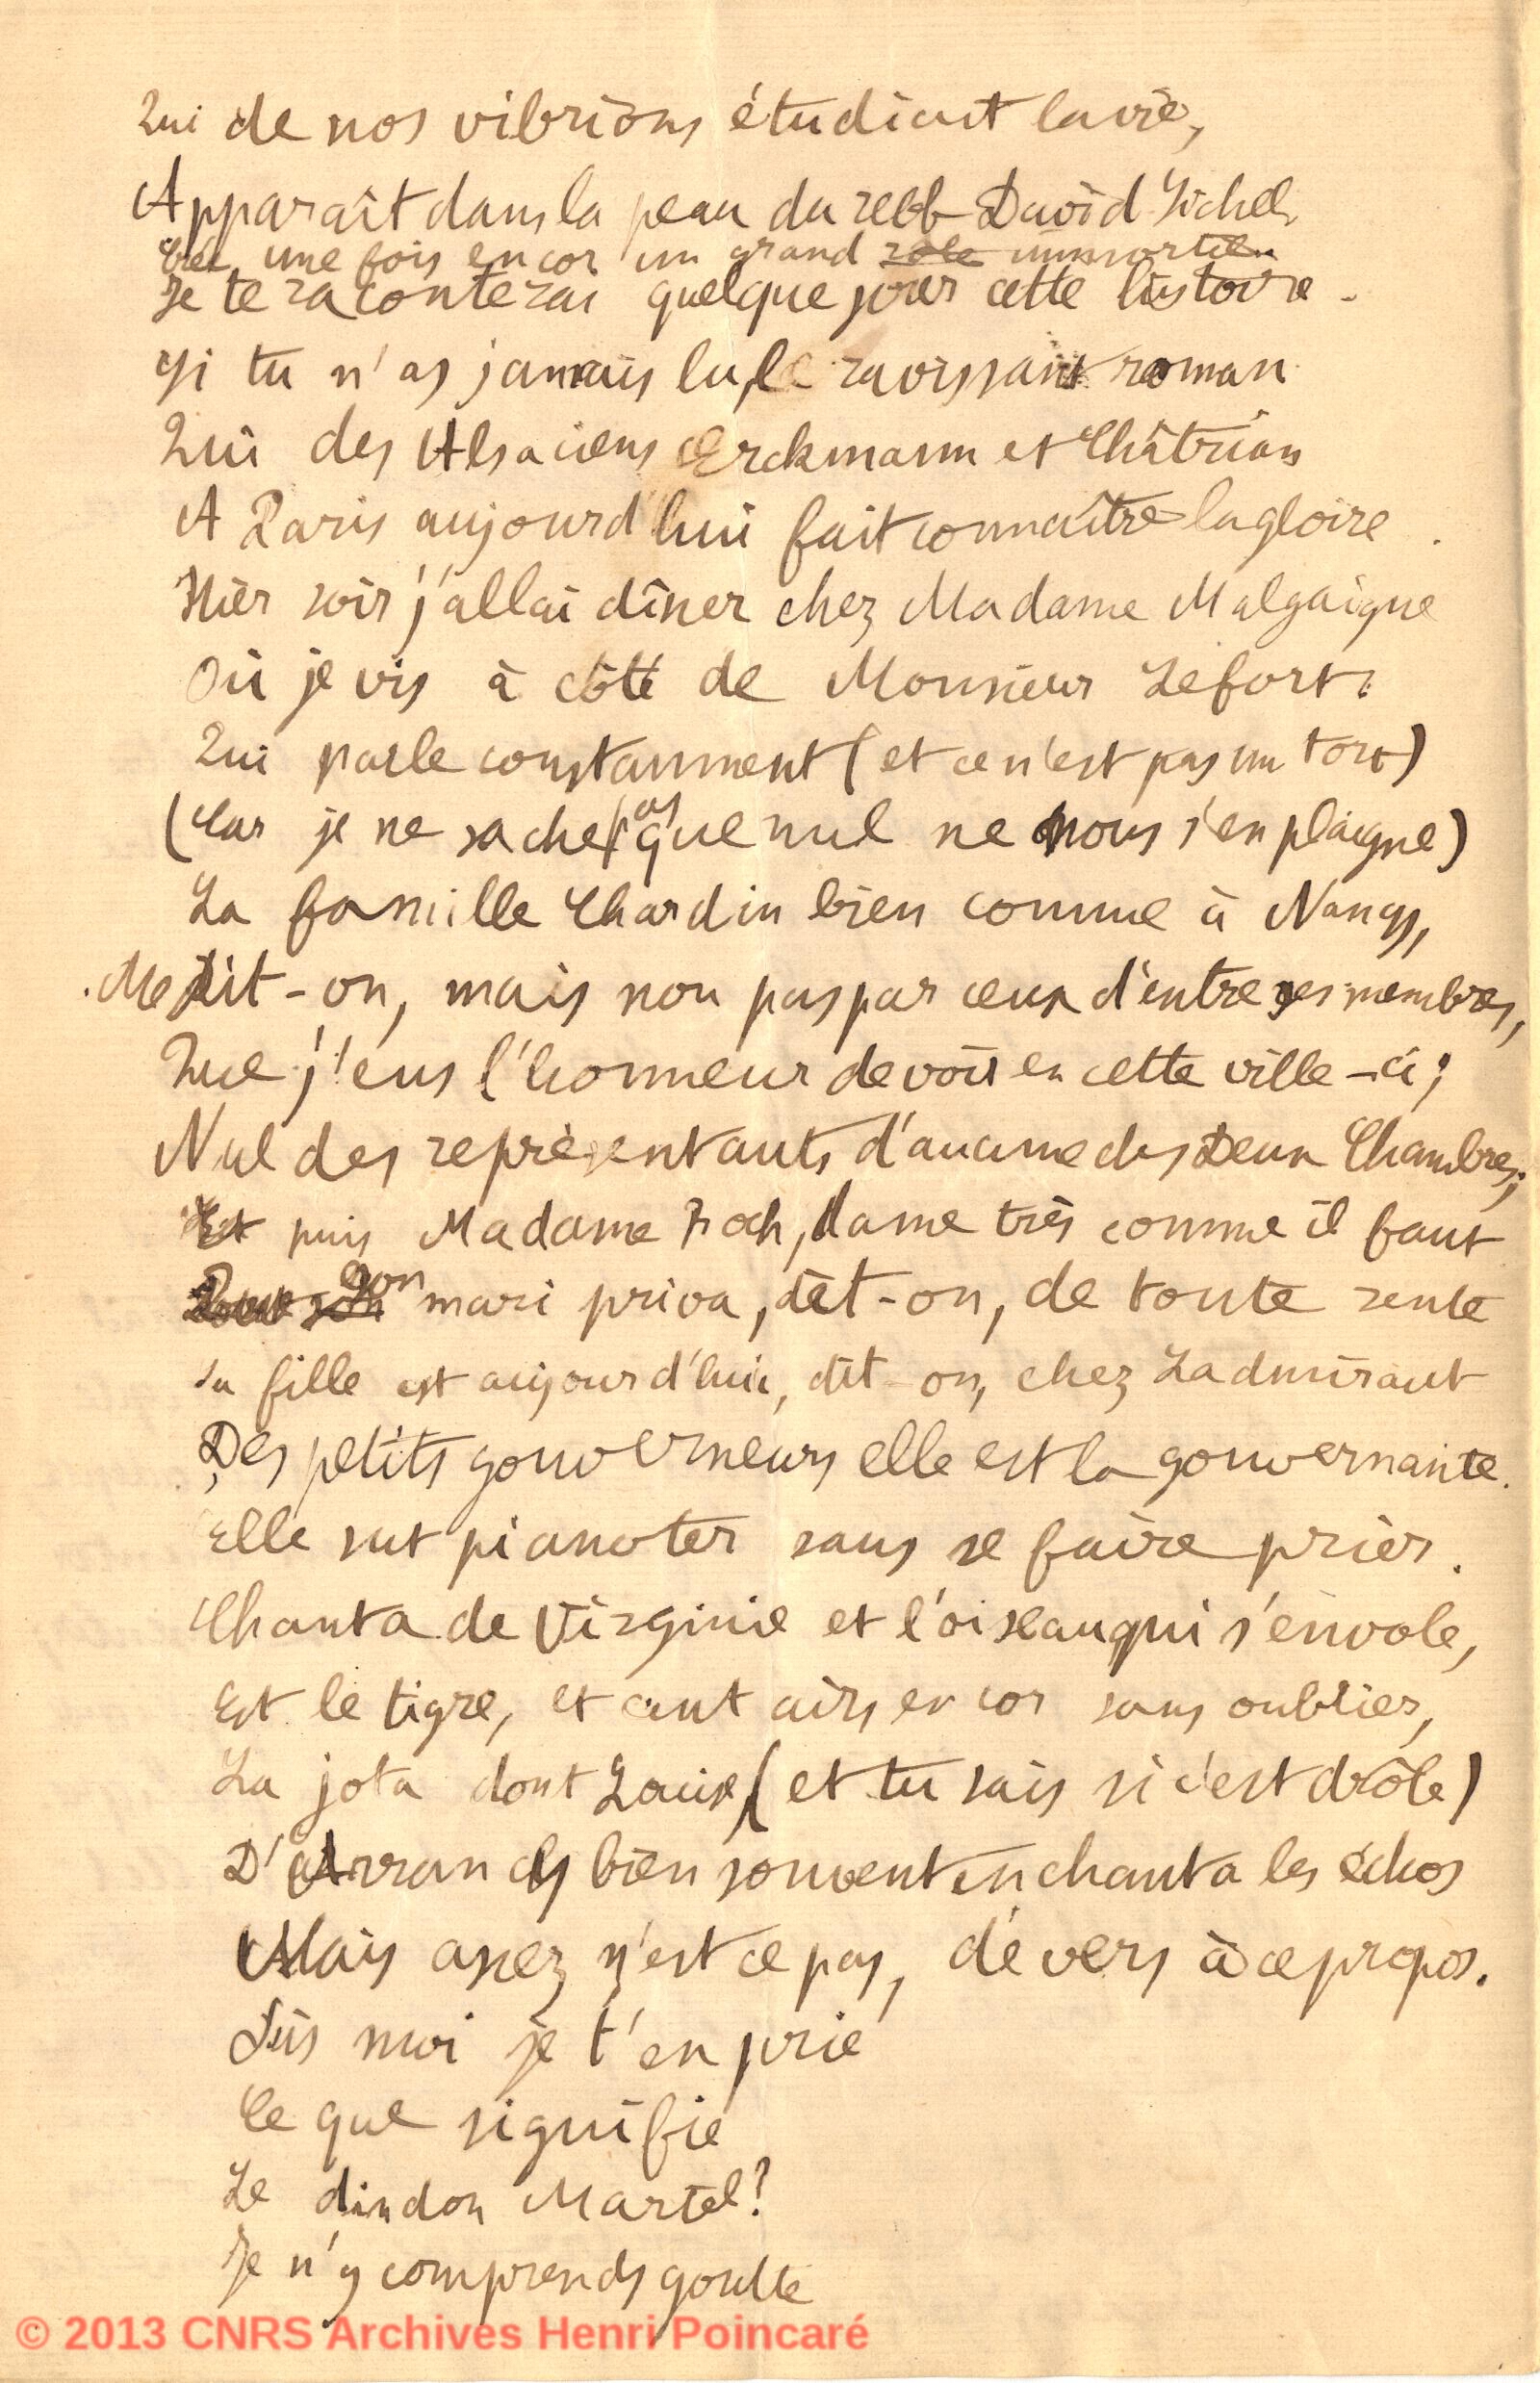 Qui de nos vibrions étudiant la vie,
Apparaît dans la peau du rebb David Sichel,
Crée une fois encor un grand rôle immortel.
Je te raconterai quelque jour cette histoire.
Si tu n'as jamais lu, le ravissant roman
Qui des Alsaciens Erckmann et Châtrian
A Paris aujourd'hui fait connaître la gloire.
Hier soir j'allai dîner chez Madame Malgaigne
Où je vis à côté de Monsieur Lefort.
Qui parle constamment (et ce n'est pas un tort)
(Car je ne sache pas que nul ne nous s'en plaigne)
La famille Chardin bien connue à Nancy,
Me dit-on, mais non pas par ceux d'entre ses membres,
Que j'eus l'honneur de voir en cette ville-ci;
Nul des représentants d'aucune des Deux Chambres;
Et puis Madame Foch, dame très comme il faut
Que son Son mari priva, dit-on, de toute rente
Sa fille est aujourd'hui, dit-on, chez Ladmiraut
Des petits gouverneurs elle est la gouvernante.
Elle sut pianoter sans se faire prier.
Chanta de Virginie et l'oiseau qui s'envole,
Et le tigre, et cent airs encor sans oublier,
La jota dont Louise (et tu sais si c'est drôle)
D'Arrancy bien souvent enchanta les échos
Mais assez n'est ce pas, de vers à ce propos.
Dis moi je t'en prie
Ce que signifie
Le dindon Martel?
Je n'y comprends goutte
© 2013 CNRS Archives Henri Poincaré